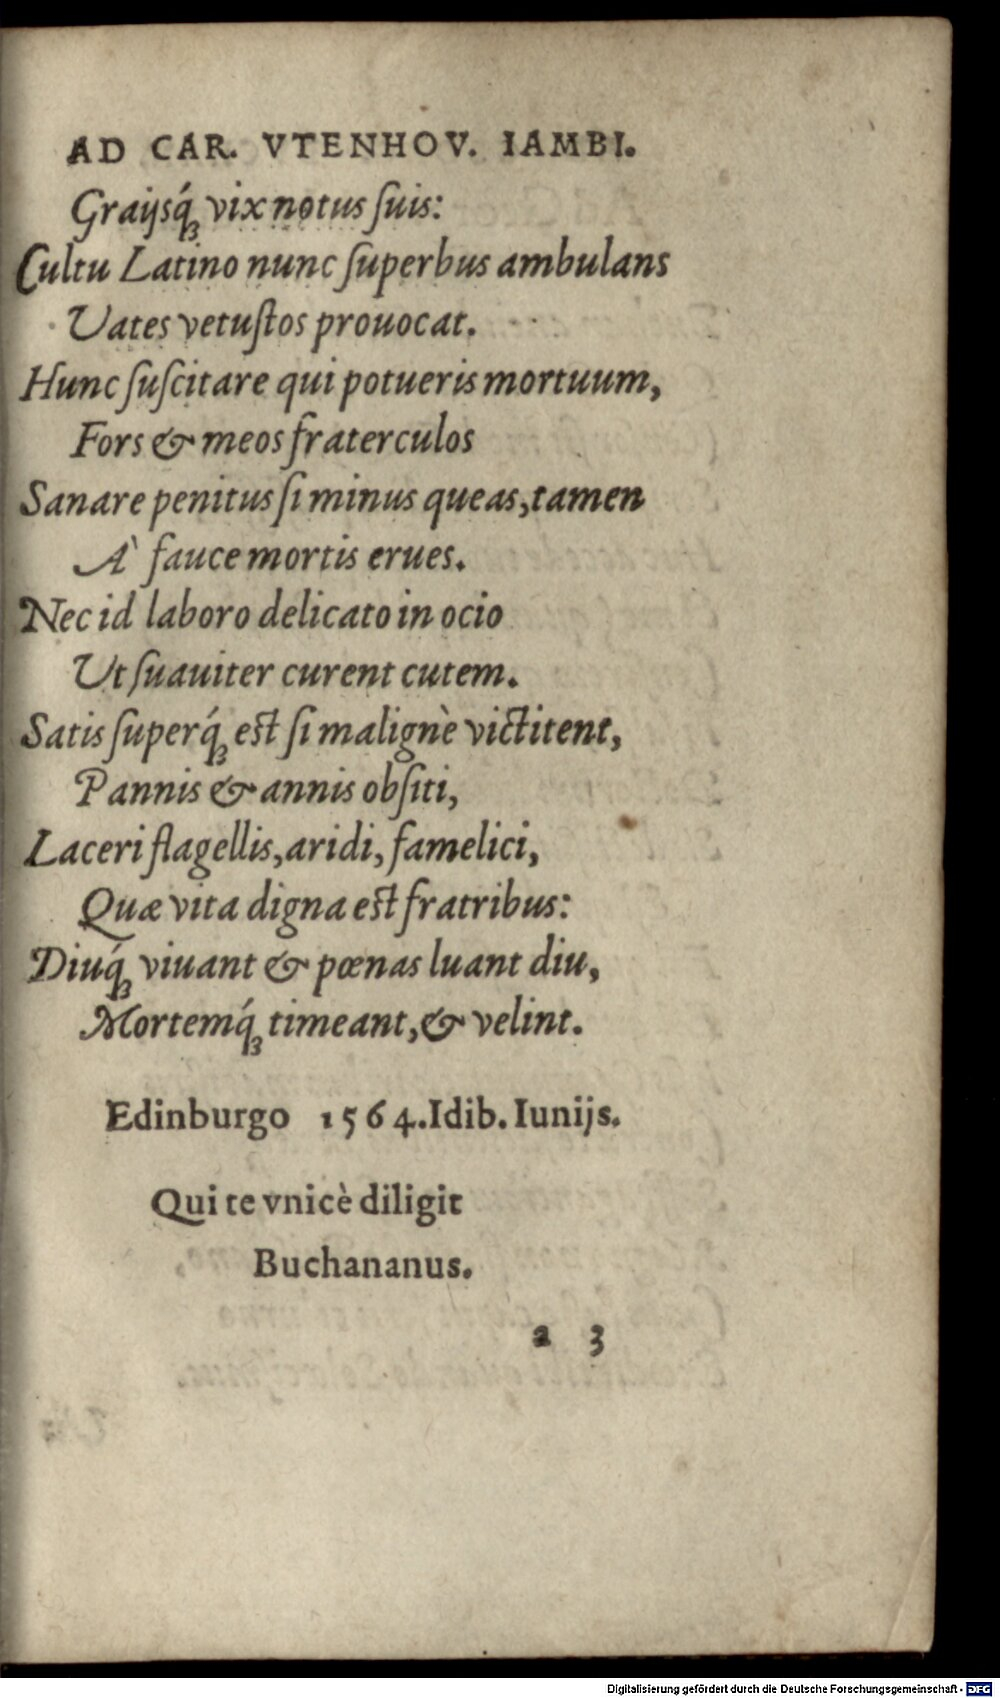 AD CAR. VTENHOV. IAMBI.
Graijsq́ꝫ vix notus ſuis:
Cultu Latino nunc ſuperbus ambulans
Uates vetuſtos prouocat.
Hunc ſuſcitare qui potueris mortuum,
Fors & meos fraterculos
Sanare penitus ſi minus queas, tamen
À fauce mortis erues.
Nec id laboro delicato in ocio
Ut ſuauiter curent cutem.
Satis ſuperq́ꝫ eſt ſi malignè victitent,
Pannis & annis obſiti,
Laceri flagellis, aridi, famelici,
Quæ vita digna eſt fratribus:
Diuq́ꝫ viuant & pœnas luant diu,
Mortemq́ꝫ timeant, & velint.
Edinburgo 1564. Idib. Iunijs.
Qui te vnicè diligit
Buchananus.
a 3
Digitalisierung gefördert durch die Deutsche Forschungsgemeinschaft - DFG